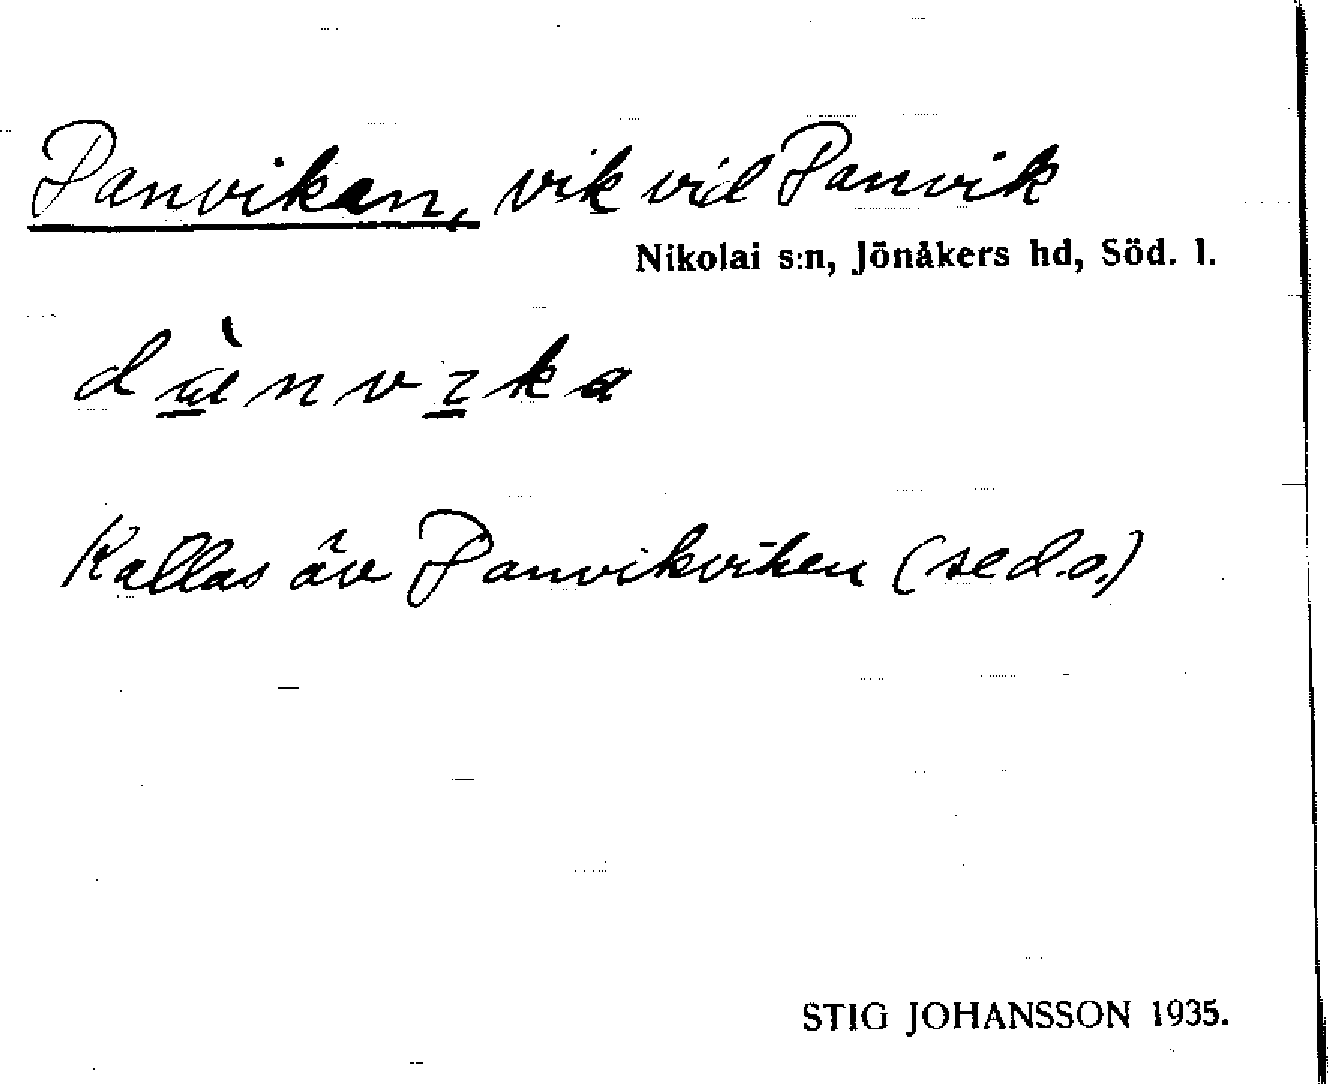 Danviken, vik vid Danvik
Nikolai s:n, Jönåkers hd, Söd. l.
d<u>æ̀</u>nv<u>ɩ</u>ka
Kallas äv Danvikviken (se d.o.)
STIG JOHANSSON 1935.